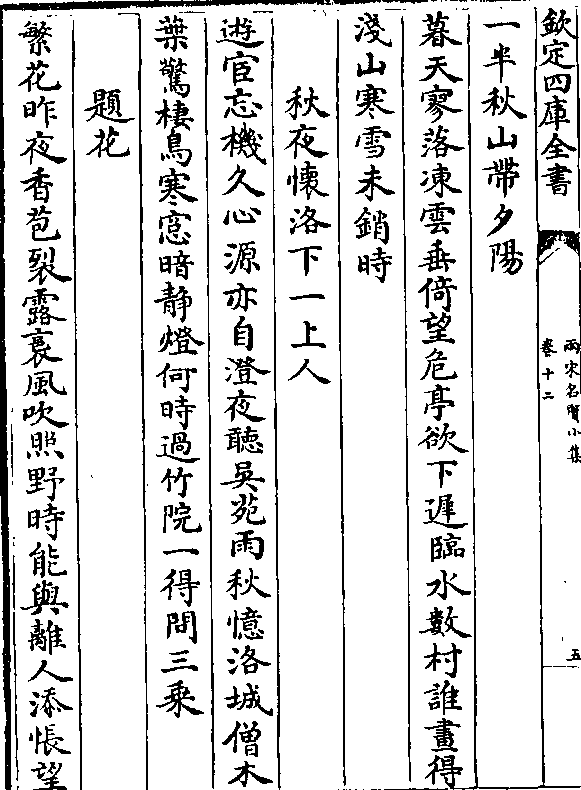 欽定四庫全書
兩宋名賢小集
卷十二
五
一半秋山帶夕陽
暮天寥落凍雲垂倚望危亭欲下遲臨水數村誰畫得
淺山寒雪未銷時
秋夜懷洛下一上人
遊宦忘機久心源亦自澄夜聽吳苑雨秋憶洛城僧木
葉驚棲鳥寒窓暗靜燈何時過竹院一得問三乘
題花
繁花昨夜香苞裂露裛風吹照野時能與離人添悵望